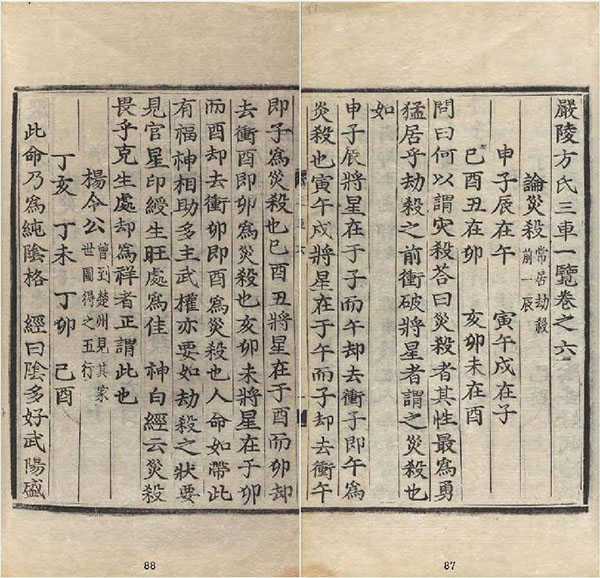 嚴陵方氏三車一覽卷之六
論災殺 常居劫殺
前一辰
申子辰在午 寅午戌在子
巳酉丑在卯 亥卯未在酉
問曰何以謂灾殺荅曰災殺者其性最爲勇
猛居乎劫殺之前衝破將星者謂之災殺也
如
申子辰將星在于子而午却去衝子即午爲
炎殺也寅午戌將星在于午而子却去衝午
87
即子爲災殺也巳酉丑將星在于酉而卯却
去衝酉即卯爲災殺也亥卯未將星在于卯
而酉却去衝卯即酉爲災殺也人命如帶此
有福神相助多主武權亦要如劫殺之狀要
見官星印綬生旺處爲佳 神白經云災殺
畏乎克生處却爲祥者正謂此也
楊令公 曾到楚州見其家
世圖得之五行
丁亥 丁未 丁卯 己酉
此命乃爲純陰格 經曰陰多好武陽盛
88